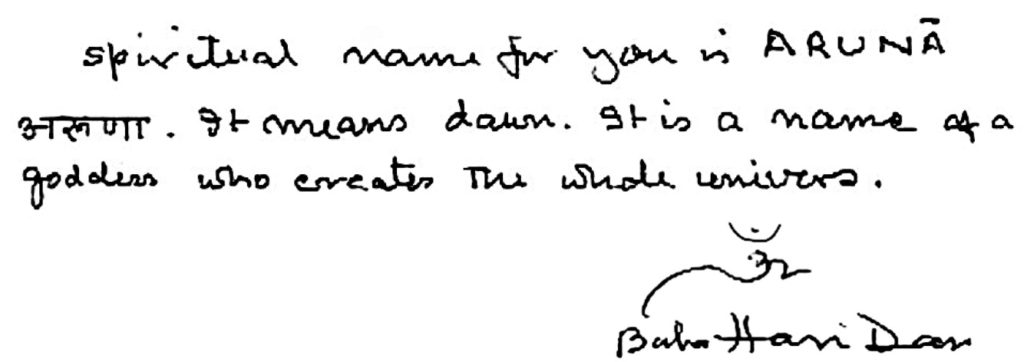 spiritual name for you is ARUNĀ
अरुणा. It means dawn. It is a name of a
goddess who creates The whole univers.
ॐ
Baba Hari Dass